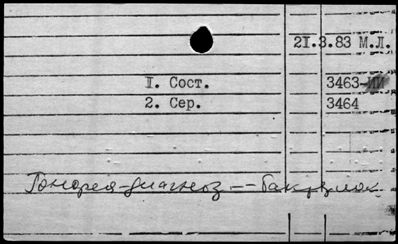 21.3.83 М.Л.
I. Сост. 3463-ИИ
2. Сер. 3464
Гонорея-диагноз --